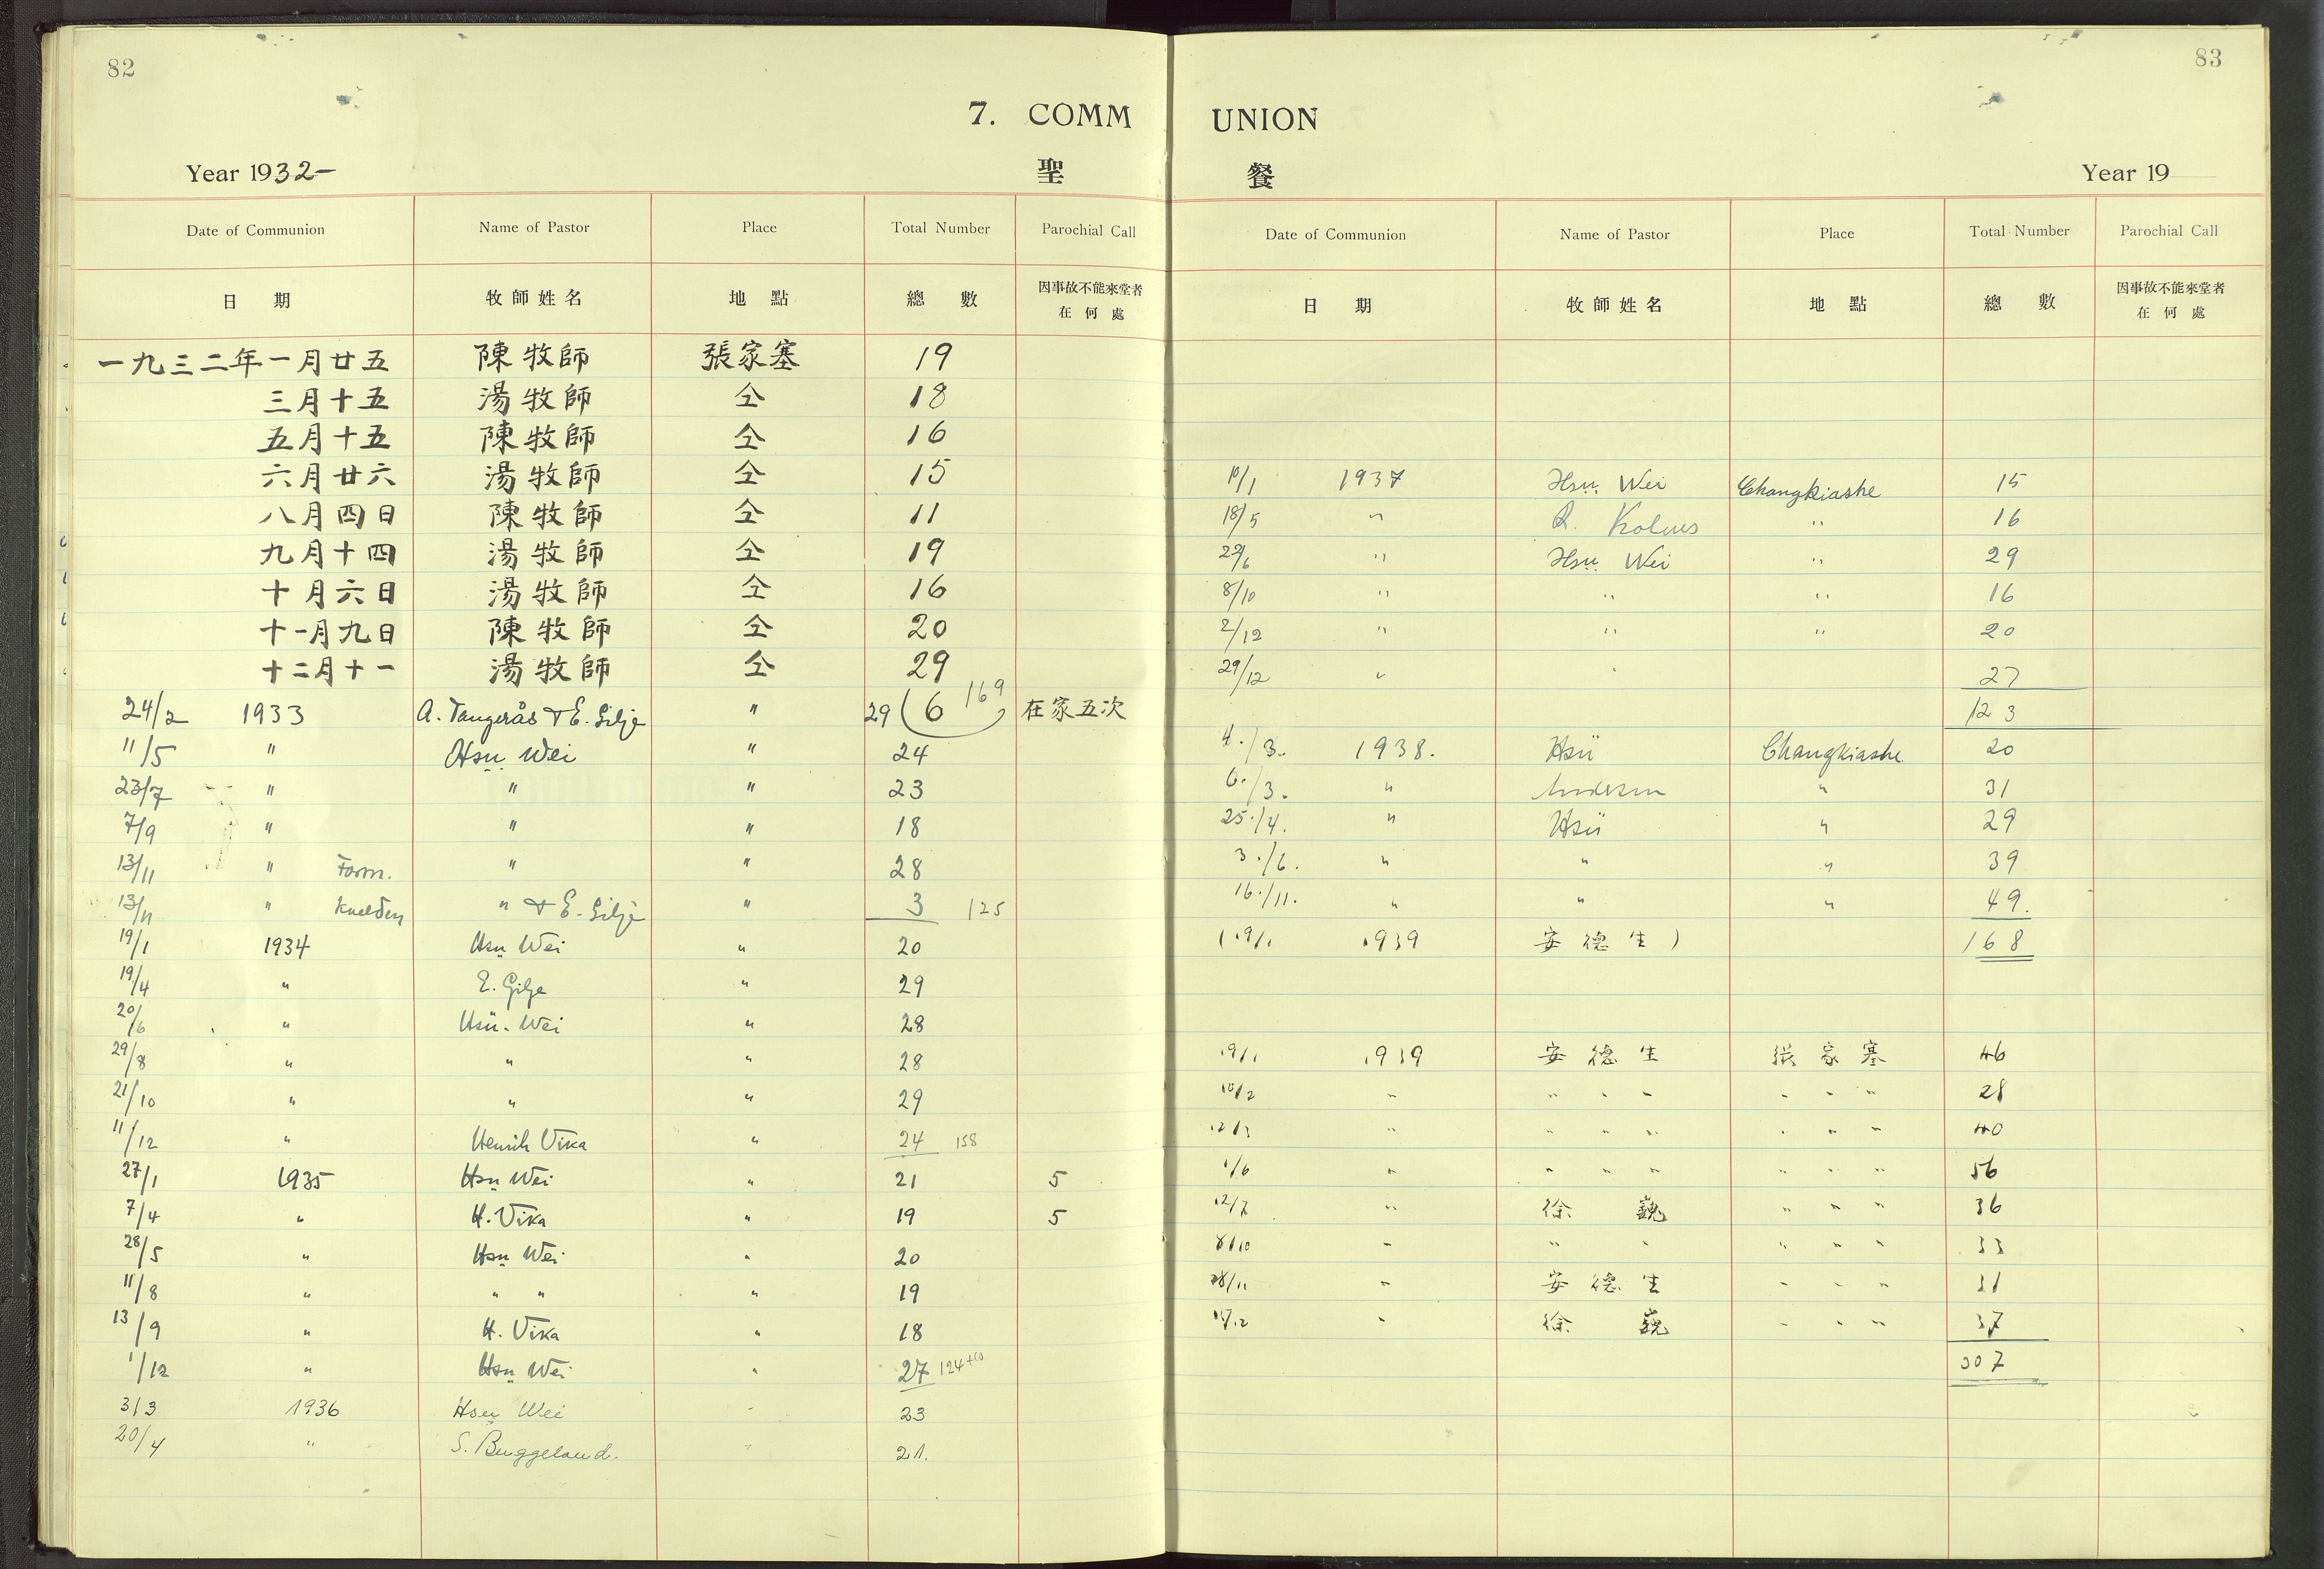 82
7. COMM
Year 1932-
聖
Date of Communion Name of Pastor Place Total Number Parochial Call
日 期 牧師姓名 地 點 總 數 因事故不能來堂者
在何處
一九三二年一月廿五 陳牧師 張家塞 19
三月十五 湯牧師 仝 18
五月十五 陳牧師 仝 16
六月廿六 湯牧師 仝 15
八月四日 陳牧師 仝 11
九月十四 湯牧師 仝 19
十月六日 湯牧師 仝 16
十一月九日 陳牧師 仝 20
十二月十一 湯牧師 仝 29
169
24/2 1933 A. Tangerås & E. Gilje " 29 (6) 在家五次
11/5 " Hsü Wei " 24
23/7 " " " 23
7/9 " " " 18
13/11 " Form. " " 28
13/11 " Kvelden " & E. Gilje " 3 125
19/1 1934 Hsü Wei " 20
19/4 " E. Gilje " 29
20/6 " Hsü-Wei " 28
29/8 " " " 28
21/10 " " " 29
11/12 " Henrik Vika " 24 158
27/1 1935 Hsü Wei " 21 5
7/4 " H. Vika " 19 5
28/5 " Hsü Wei " 20
11/8 " " " " 19
13/9 " H. Vika " 18
1/12 " Hsü Wei " 27 124+10
3/3 1936 Hsü Wei " 23
20/4 " S. Buggeland. " 21.
83
UNION
餐
Year 19
Date of Communion Name of Pastor Place Total Number Parochial Call
日 期 牧師姓名 地 點 總 數 因事故不能來堂者
在何處
10/1 1937 Hsü Wei Changkiashe 15
18/5 " R. Kolnes " 16
29/6 " Hsü Wei " 29
8/10 " " " 16
2/12 " " " 20
29/12 " " 27
123
4./3. 1938. Hsü Changkiashe 20
6./3. " Anderson " 31
25./4. " Hsü " 29
3./6. " " " 39
16./11. " " " 49.
(19/1 1939 安德生) 168
19/1 1939 安德生 張家塞 46
10/2 " " " " " " " 28
12/3 " " " " " " " 40
1/6 " " " " " " " 56
12/7 " 徐 巍 " " " 36
8/10 " " " " " " 33
28/11 " 安德生 " " " 31
" 徐 巍 " " " 37
307